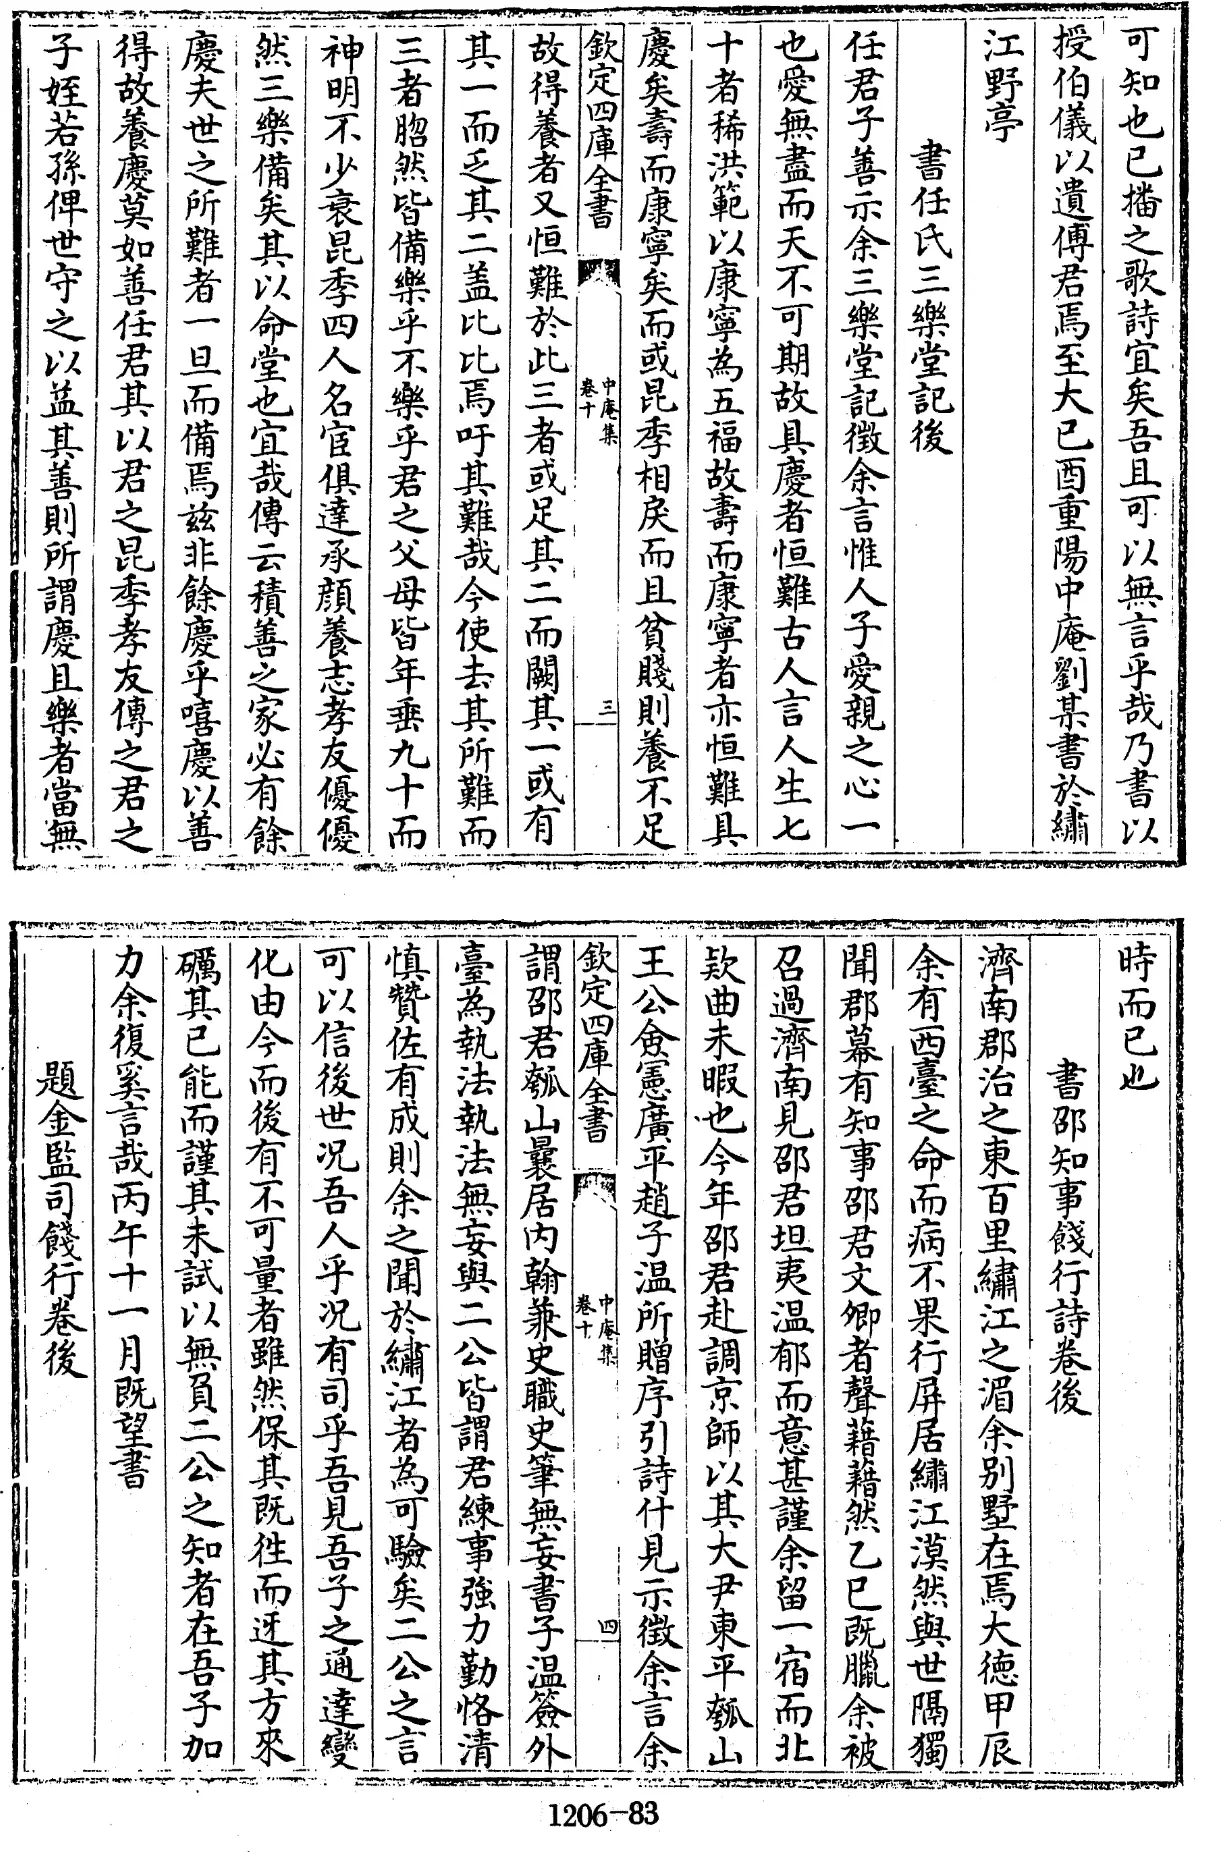 可知也已播之歌詩宜矣吾且可以無言乎哉乃書以
授伯儀以遺傅君焉至大已酉重陽中庵劉某書於繡
江野亭
書任氏三樂堂記後
任君子善示余三樂堂記徵余言惟人子愛親之心一
也愛無盡而天不可期故具慶者恒難古人言人生七
十者稀洪範以康寧為五福故壽而康寧者亦恒難具
慶矣壽而康寧矣而或昆季相戾而且貧賤則養不足
欽定四庫全書
中庵集
卷十
三
故得養者又恒難於此三者或足其二而闕其一或有
其一而乏其二盖比比焉吁其難哉今使去其所難而
三者脗然皆備樂乎不樂乎君之父母皆年垂九十而
神明不少衰昆季四人名宦俱達承顔養志孝友優優
然三樂備矣其以命堂也宜哉傳云積善之家必有餘
慶夫世之所難者一旦而備焉兹非餘慶乎嘻慶以善
得故養慶莫如善任君其以君之昆季孝友傳之君之
子姪若孫俾世守之以益其善則所謂慶且樂者當無
時而已也
書邵知事餞行詩卷後
濟南郡治之東百里繡江之湄余别墅在焉大德甲辰
余有西臺之命而病不果行屏居繡江漠然與世隔獨
聞郡幕有知事邵君文卿者聲藉藉然乙巳既臘余被
召過濟南見邵君坦夷温郁而意甚謹余留一宿而北
欵曲未暇也今年邵君赴調京師以其大尹東平瓠山
王公僉憲廣平趙子温所贈序引詩什見示徵余言余
欽定四庫全書
中庵集
卷十
四
謂邵君瓠山曩居内翰兼史職史筆無妄書子温簽外
臺為執法執法無妄與二公皆謂君練事強力勤恪清
慎贊佐有成則余之聞於繡江者為可驗矣二公之言
可以信後世况吾人乎况有司乎吾見吾子之通達變
化由今而後有不可量者雖然保其既往而迓其方來
礪其已能而謹其未試以無負二公之知者在吾子加
力余復奚言哉丙午十一月既望書
題金監司餞行卷後
1206-83